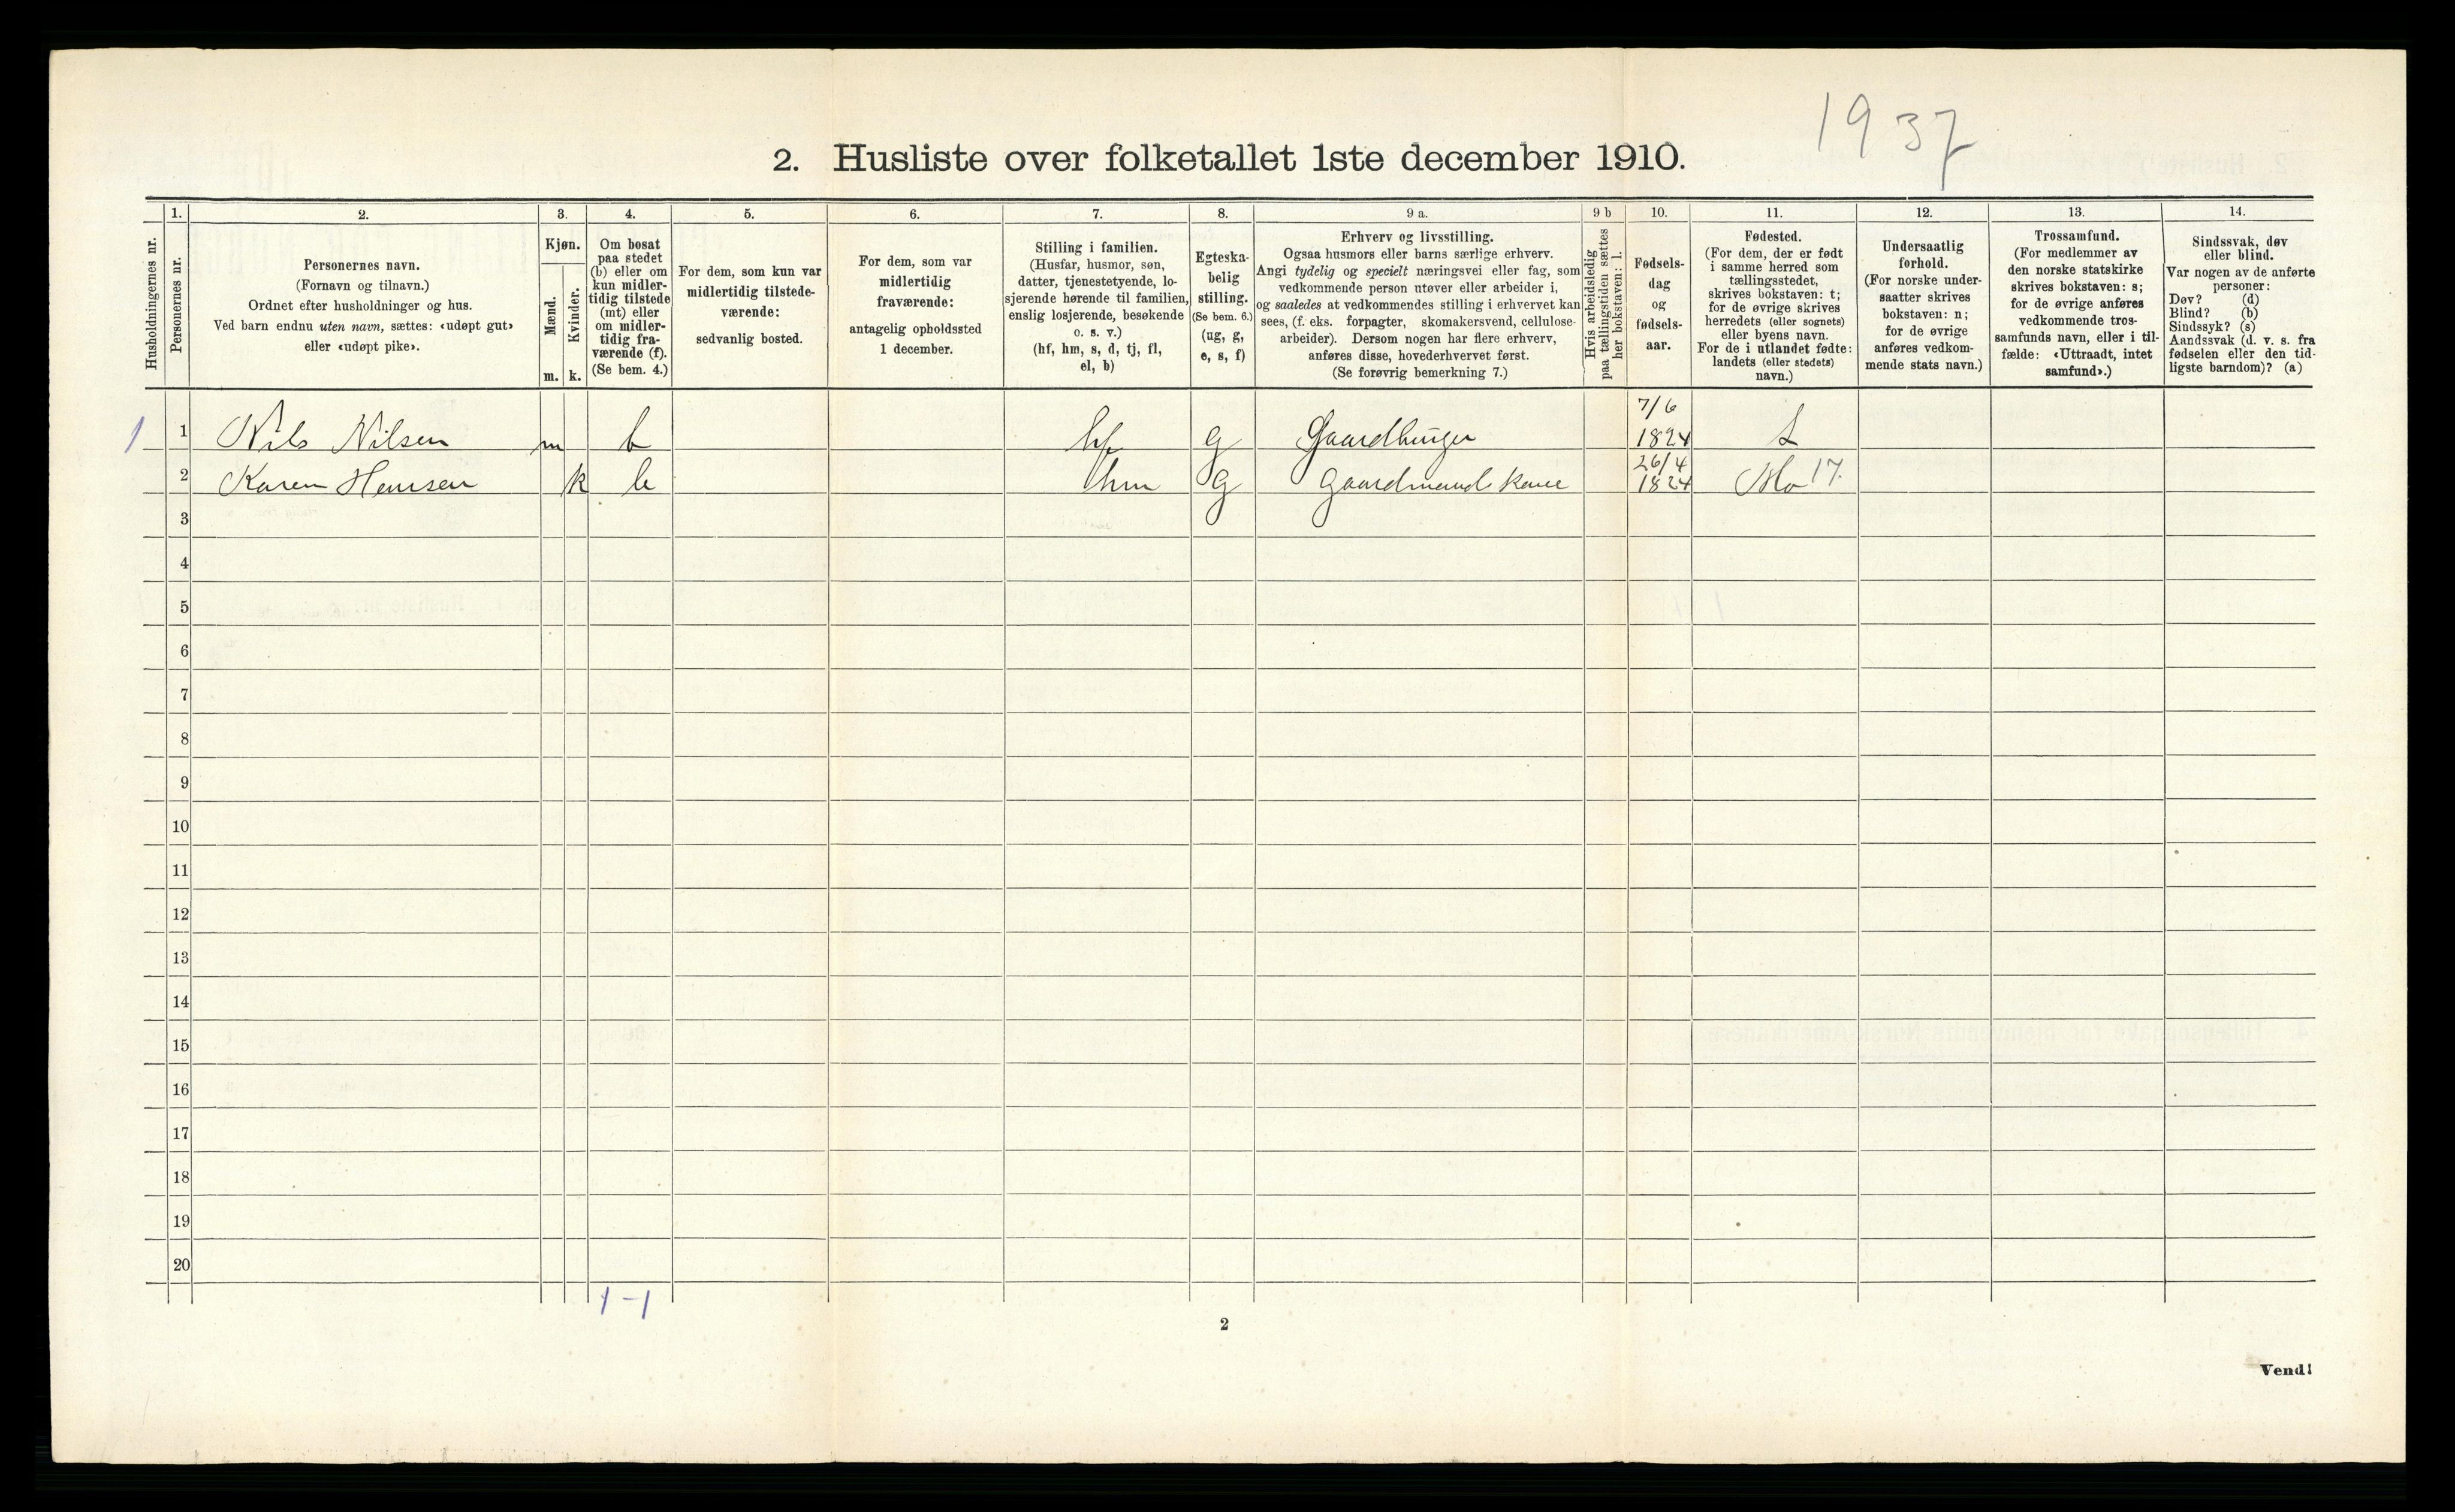 1937
2. Husliste over folketallet 1ste december 1910.
1. 2. 3. 4. 5. 6. 7. 8. 9 a. 9 b 10. 11. 12. 13. 14.
Husholdningernes nr.
Personernes nr.
Personernes navn.
(Fornavn og tilnavn.)
Ordnet efter husholdninger og hus.
Ved barn endnu uten navn, sættes: «udøpt gut»
eller «udøpt pike».
Kjøn.
Mænd.
Kvinder.
m. k.
Om bosat
paa stedet
(b) eller om
kun midler-
tidig tilstede
(mt) eller
om midler-
tidig fra-
værende (f).
(Se bem. 4.)
For dem, som kun var
midlertidig tilstede-
værende:
sedvanlig bosted.
For dem, som var
midlertidig
fraværende:
antagelig opholdssted
1 december.
Stilling i familien.
(Husfar, husmor, søn,
datter, tjenestetyende, lo-
sjerende hørende til familien,
enslig losjerende, besøkende
o. s. v.)
(hf, hm, s, d, tj, fl,
el, b)
Egteska-
belig
stilling.
(Se bem. 6.)
(ug, g,
e, s, f)
Erhverv og livsstilling.
Ogsaa husmors eller barns særlige erhverv.
Angi tydelig og specielt næringsvei eller fag, som
vedkommende person utøver eller arbeider i,
og saaledes at vedkommendes stilling i erhvervet kan
sees, (f. eks. forpagter, skomakersvend, cellulose-
arbeider). Dersom nogen har flere erhverv,
anføres disse, hovederhvervet først.
(Se forøvrig bemerkning 7.)
Hvis arbeidsledig
paa tællingstiden sættes
her bokstaven: l.
Fødsels-
dag
og
fødsels-
aar.
Fødested.
(For dem, der er født
i samme herred som
tællingsstedet,
skrives bokstaven: t;
for de øvrige skrives
herredets (eller sognets)
eller byens navn.
For de i utlandet fødte:
landets (eller stedets)
navn.)
Undersaatlig
forhold.
(For norske under-
saatter skrives
bokstaven: n;
for de øvrige
anføres vedkom-
mende stats navn.)
Trossamfund.
(For medlemmer av
den norske statskirke
skrives bokstaven: s;
for de øvrige anføres
vedkommende tros-
samfunds navn, eller i til-
fælde: «Uttraadt, intet
samfund».)
Sindssvak, døv
eller blind.
Var nogen av de anførte
personer:
Døv? (d)
Blind? (b)
Sindssyk? (s)
Aandssvak (d. v. s. fra
fødselen eller den tid-
ligste barndom)? (a)
1 1 Nils Nilsen m b hf g Gaardbruger 7/6 1824
2 Karen Hansen k b hm g gaardmand kone 26/4 1824 Mo 17.
3
4
5
6
7
8
9
10
11
12
13
14
15
16
17
18
19
20
1 - 1
2
Vend!